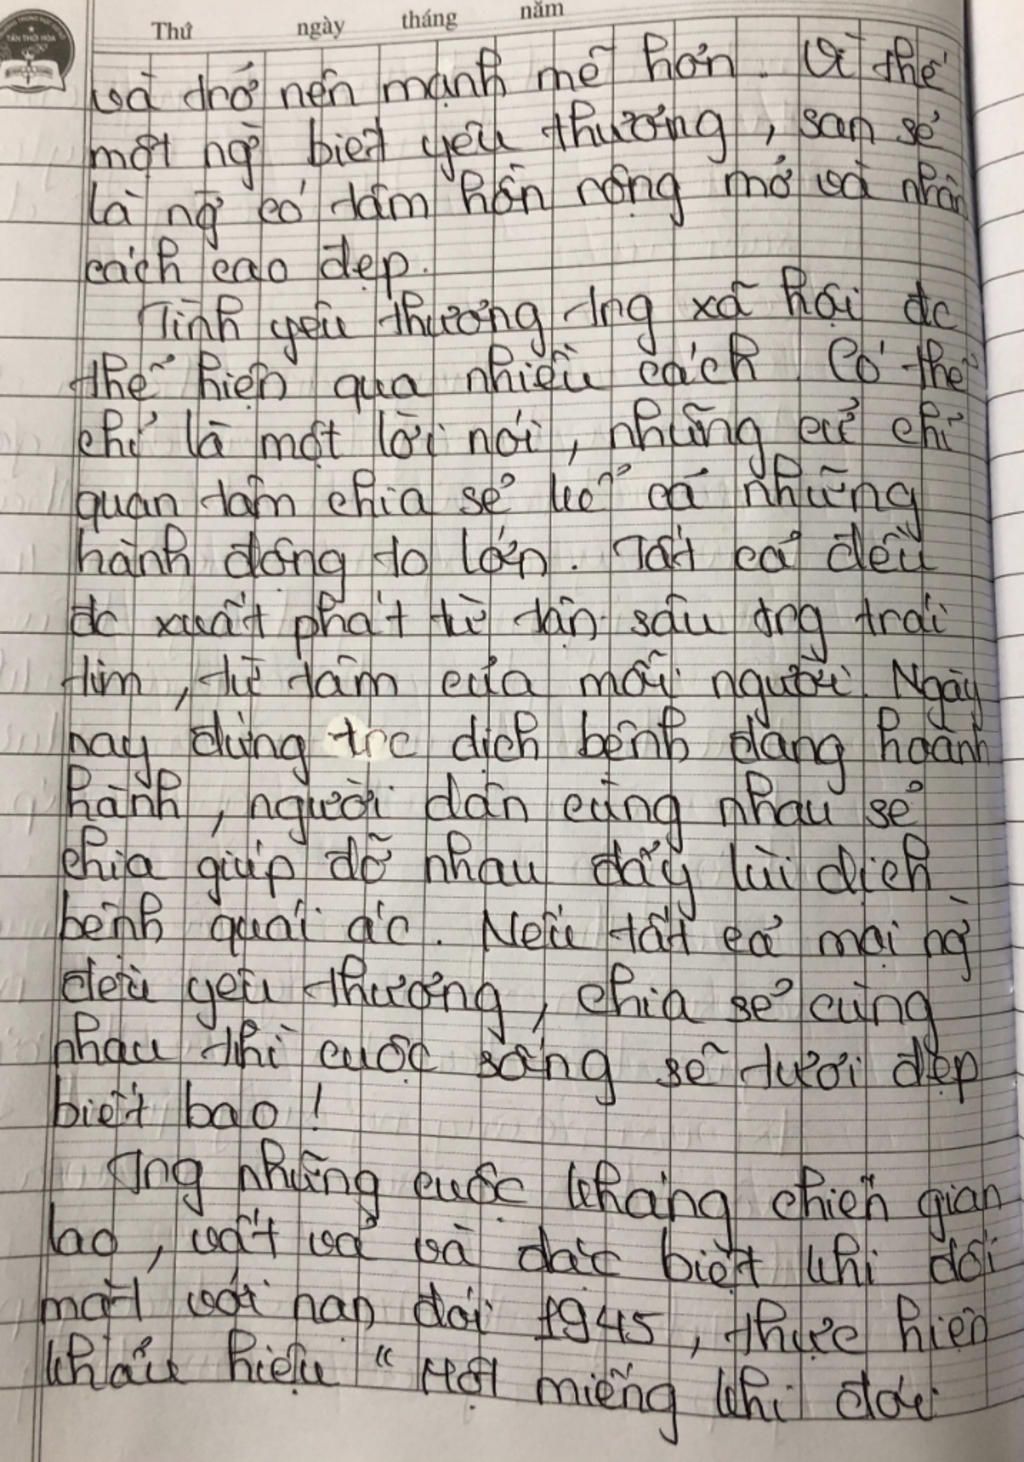 TÂN THỚI HÒA
Thứ ngày tháng năm
và trở nên mạnh mẽ hơn. Vì thế
một ng` biết yêu thương, san sẻ
là ng` có tâm hồn rộng mở và nhân
cách cao đẹp.
Tình yêu thương trg xã hội đc
thể hiện qua nhiều cách. Có thể
chỉ là một lời nói, những cử chỉ
quan tâm chia sẻ kể cả những
hành động to lớn. Tất cả đều
đc xuất phát từ tận sâu trg trái
tim, từ tâm của mỗi người. Ngày
nay đứng trc dịch bệnh đang hoành
hành, người dân cùng nhau sẻ
chia giúp đỡ nhau đẩy lùi dịch
bệnh quái ác. Nếu tất cả mọi ng`
đều yêu thương, chia sẻ cùng
nhau thì cuộc sống sẽ tươi đẹp
biết bao!
Trg những cuộc kháng chiến gian
lao, vất vả và đặc biệt khi đối
mặt với nạn đói 1945, thực hiện
khẩu hiệu “Một miếng khi đói